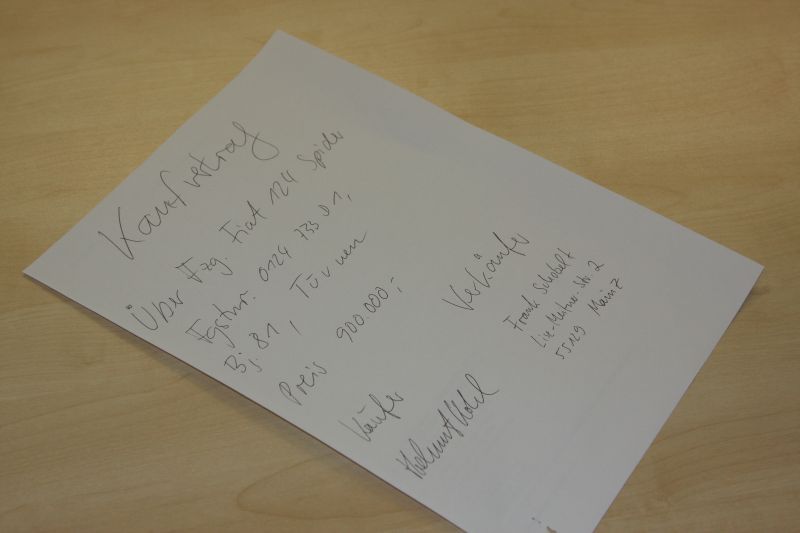 Kaufvertrag
Über Fzg. Fiat 124 Spider
Fgstnr. 0124 733 01,
Bj. 81, TÜV neu
Preis 900.000,-
Käufer
Helmut Kohl
Verkäufer
Frank
-Str. 2
55129 Mainz